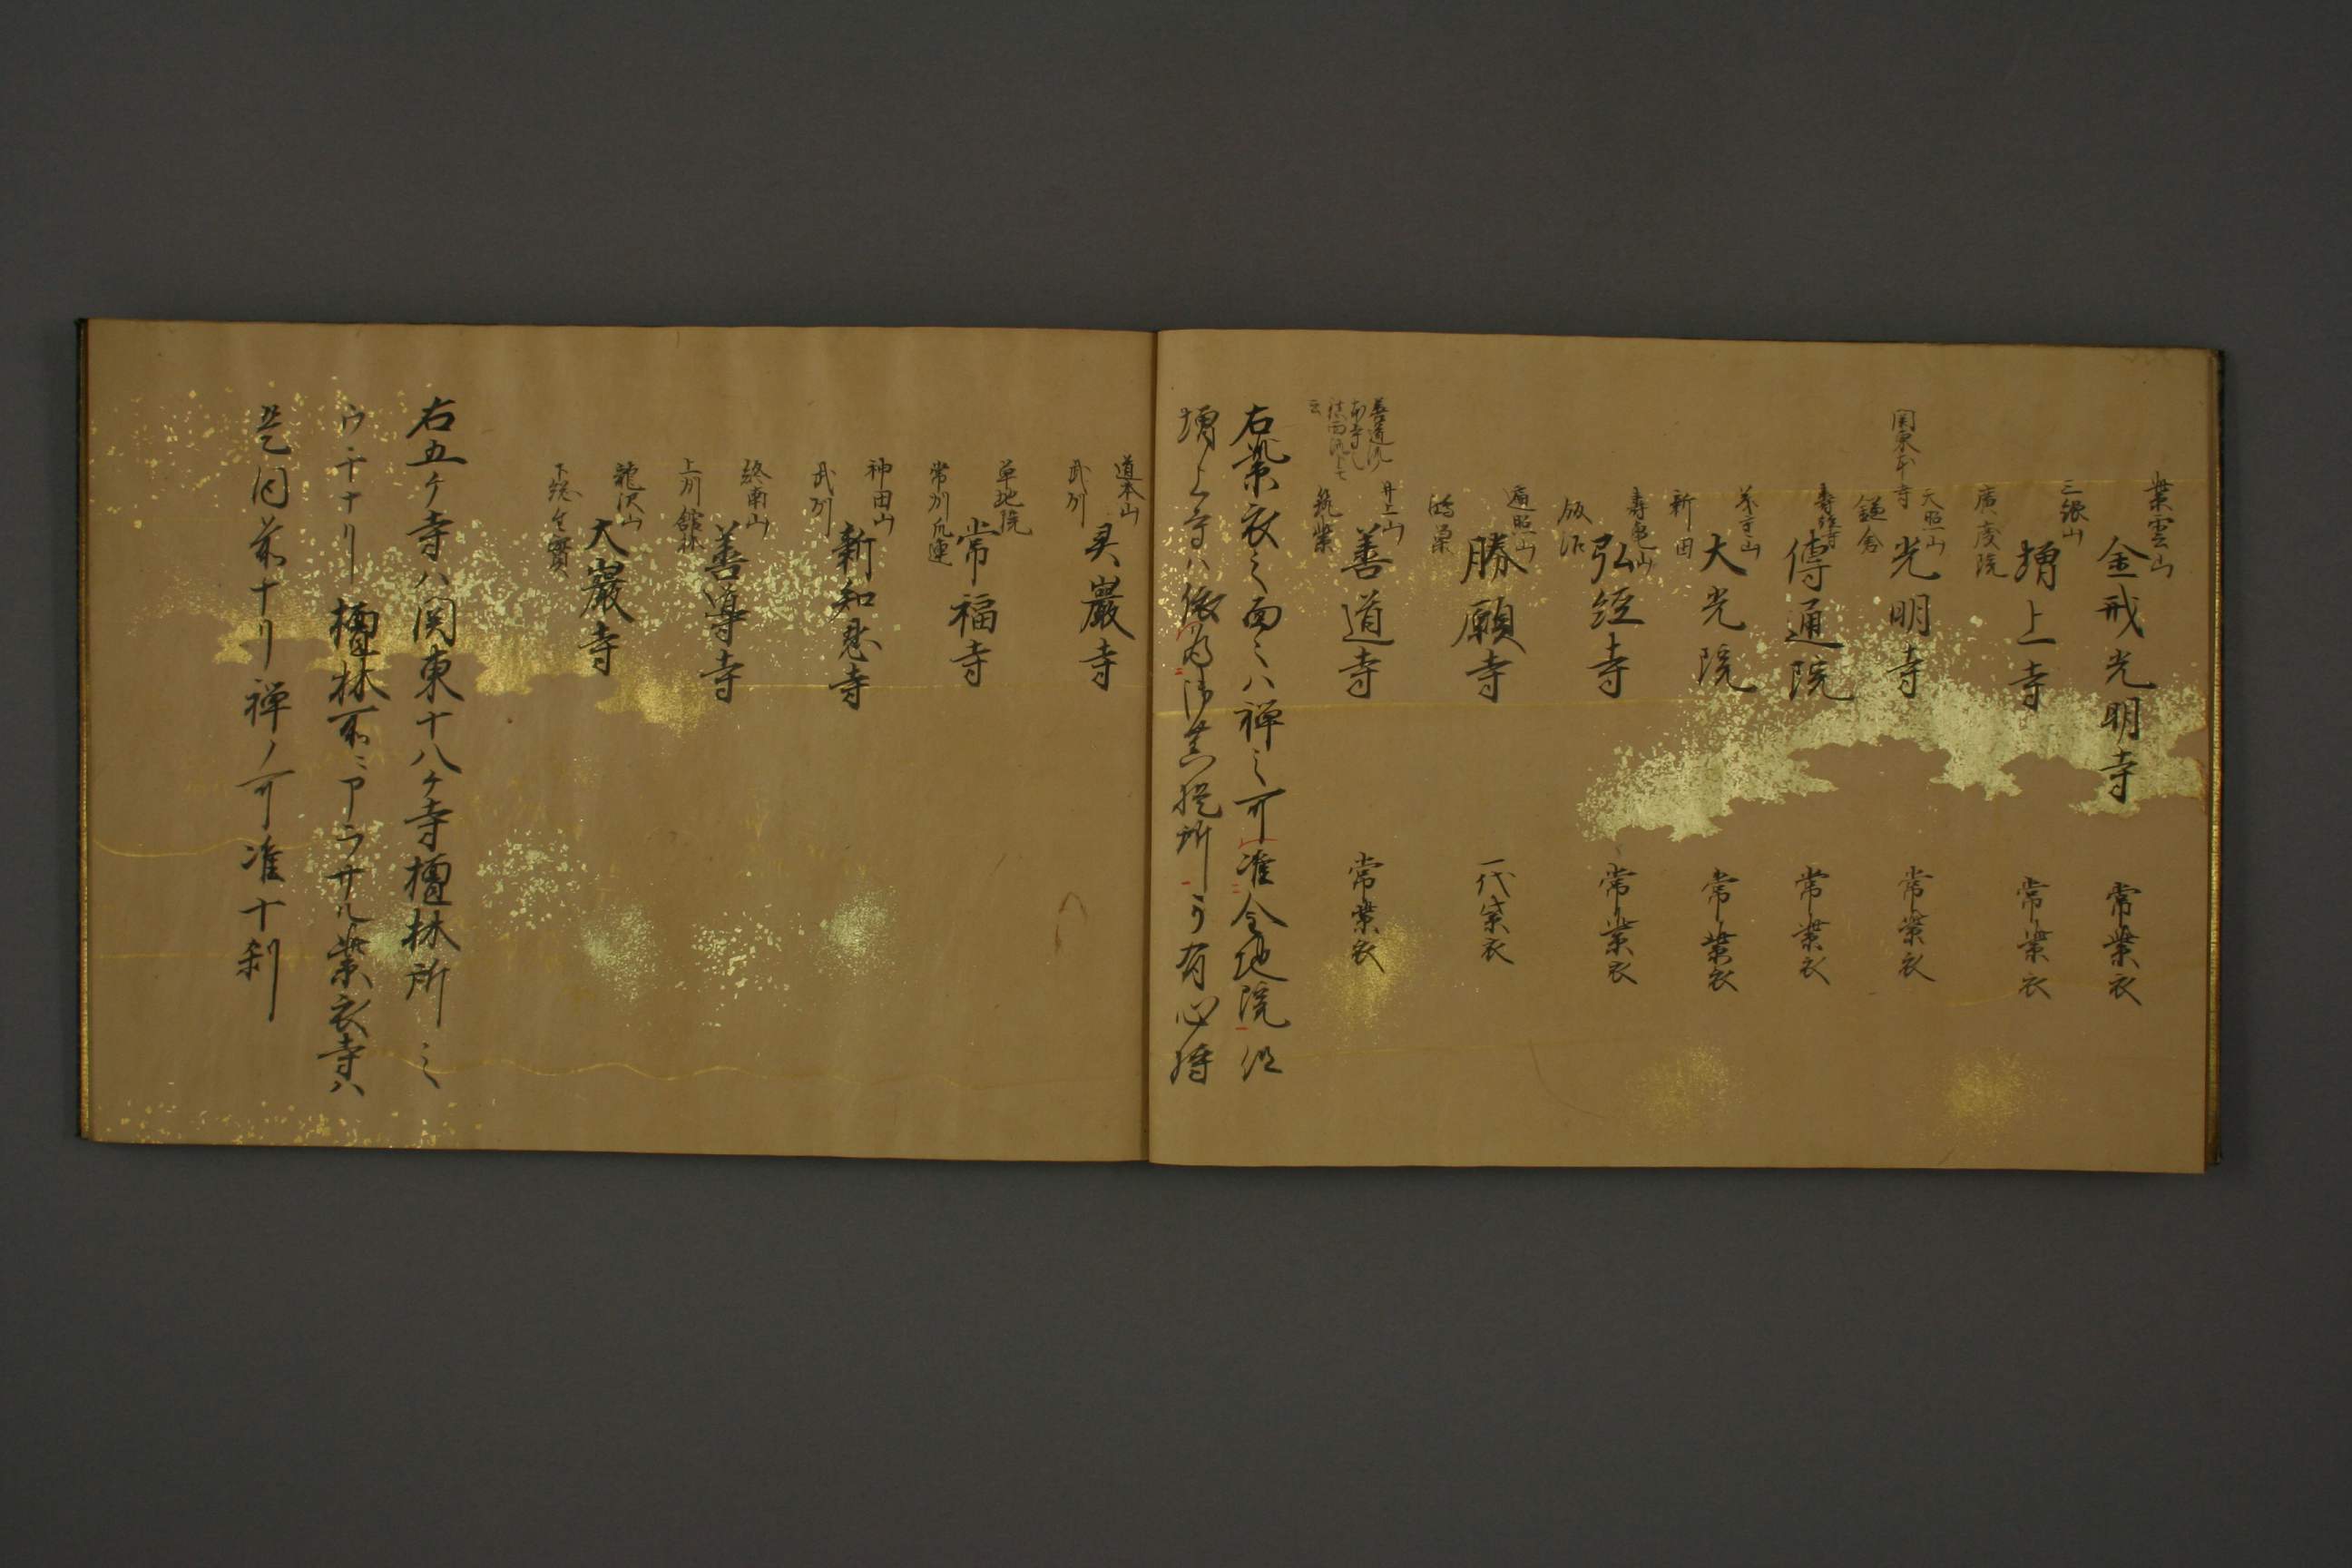 紫雲山
金戒光明寺 常紫衣
三縁山
増上寺 常紫衣
廣度院
関東本寺
天照山
光明寺 常紫衣
鎌倉
壽経寺
傳通院 常紫衣
義重山
大光院 常紫衣
新田
壽亀山
弘経寺 常紫衣
飯沼
遍照山
勝願寺 一代紫衣
鴻巣
井上山
善道寺 常紫衣
筑紫
善道流
云
右紫衣之面々ハ禅之可准金地院但
増上寺ハ依為御菩提所可有心持
道本山
㚑巌寺
武州
草地院
常福寺
常州瓜連
神田山
新知恩寺
武州
終南山
善導寺
上州舘林
龍沢山
大巌寺
下総生實
右五ケ寺ハ関東十八ケ寺檀林所之
ウチナリ檀林所ニアラサル紫衣寺ハ
是同前ナリ禅ノ可准十刹